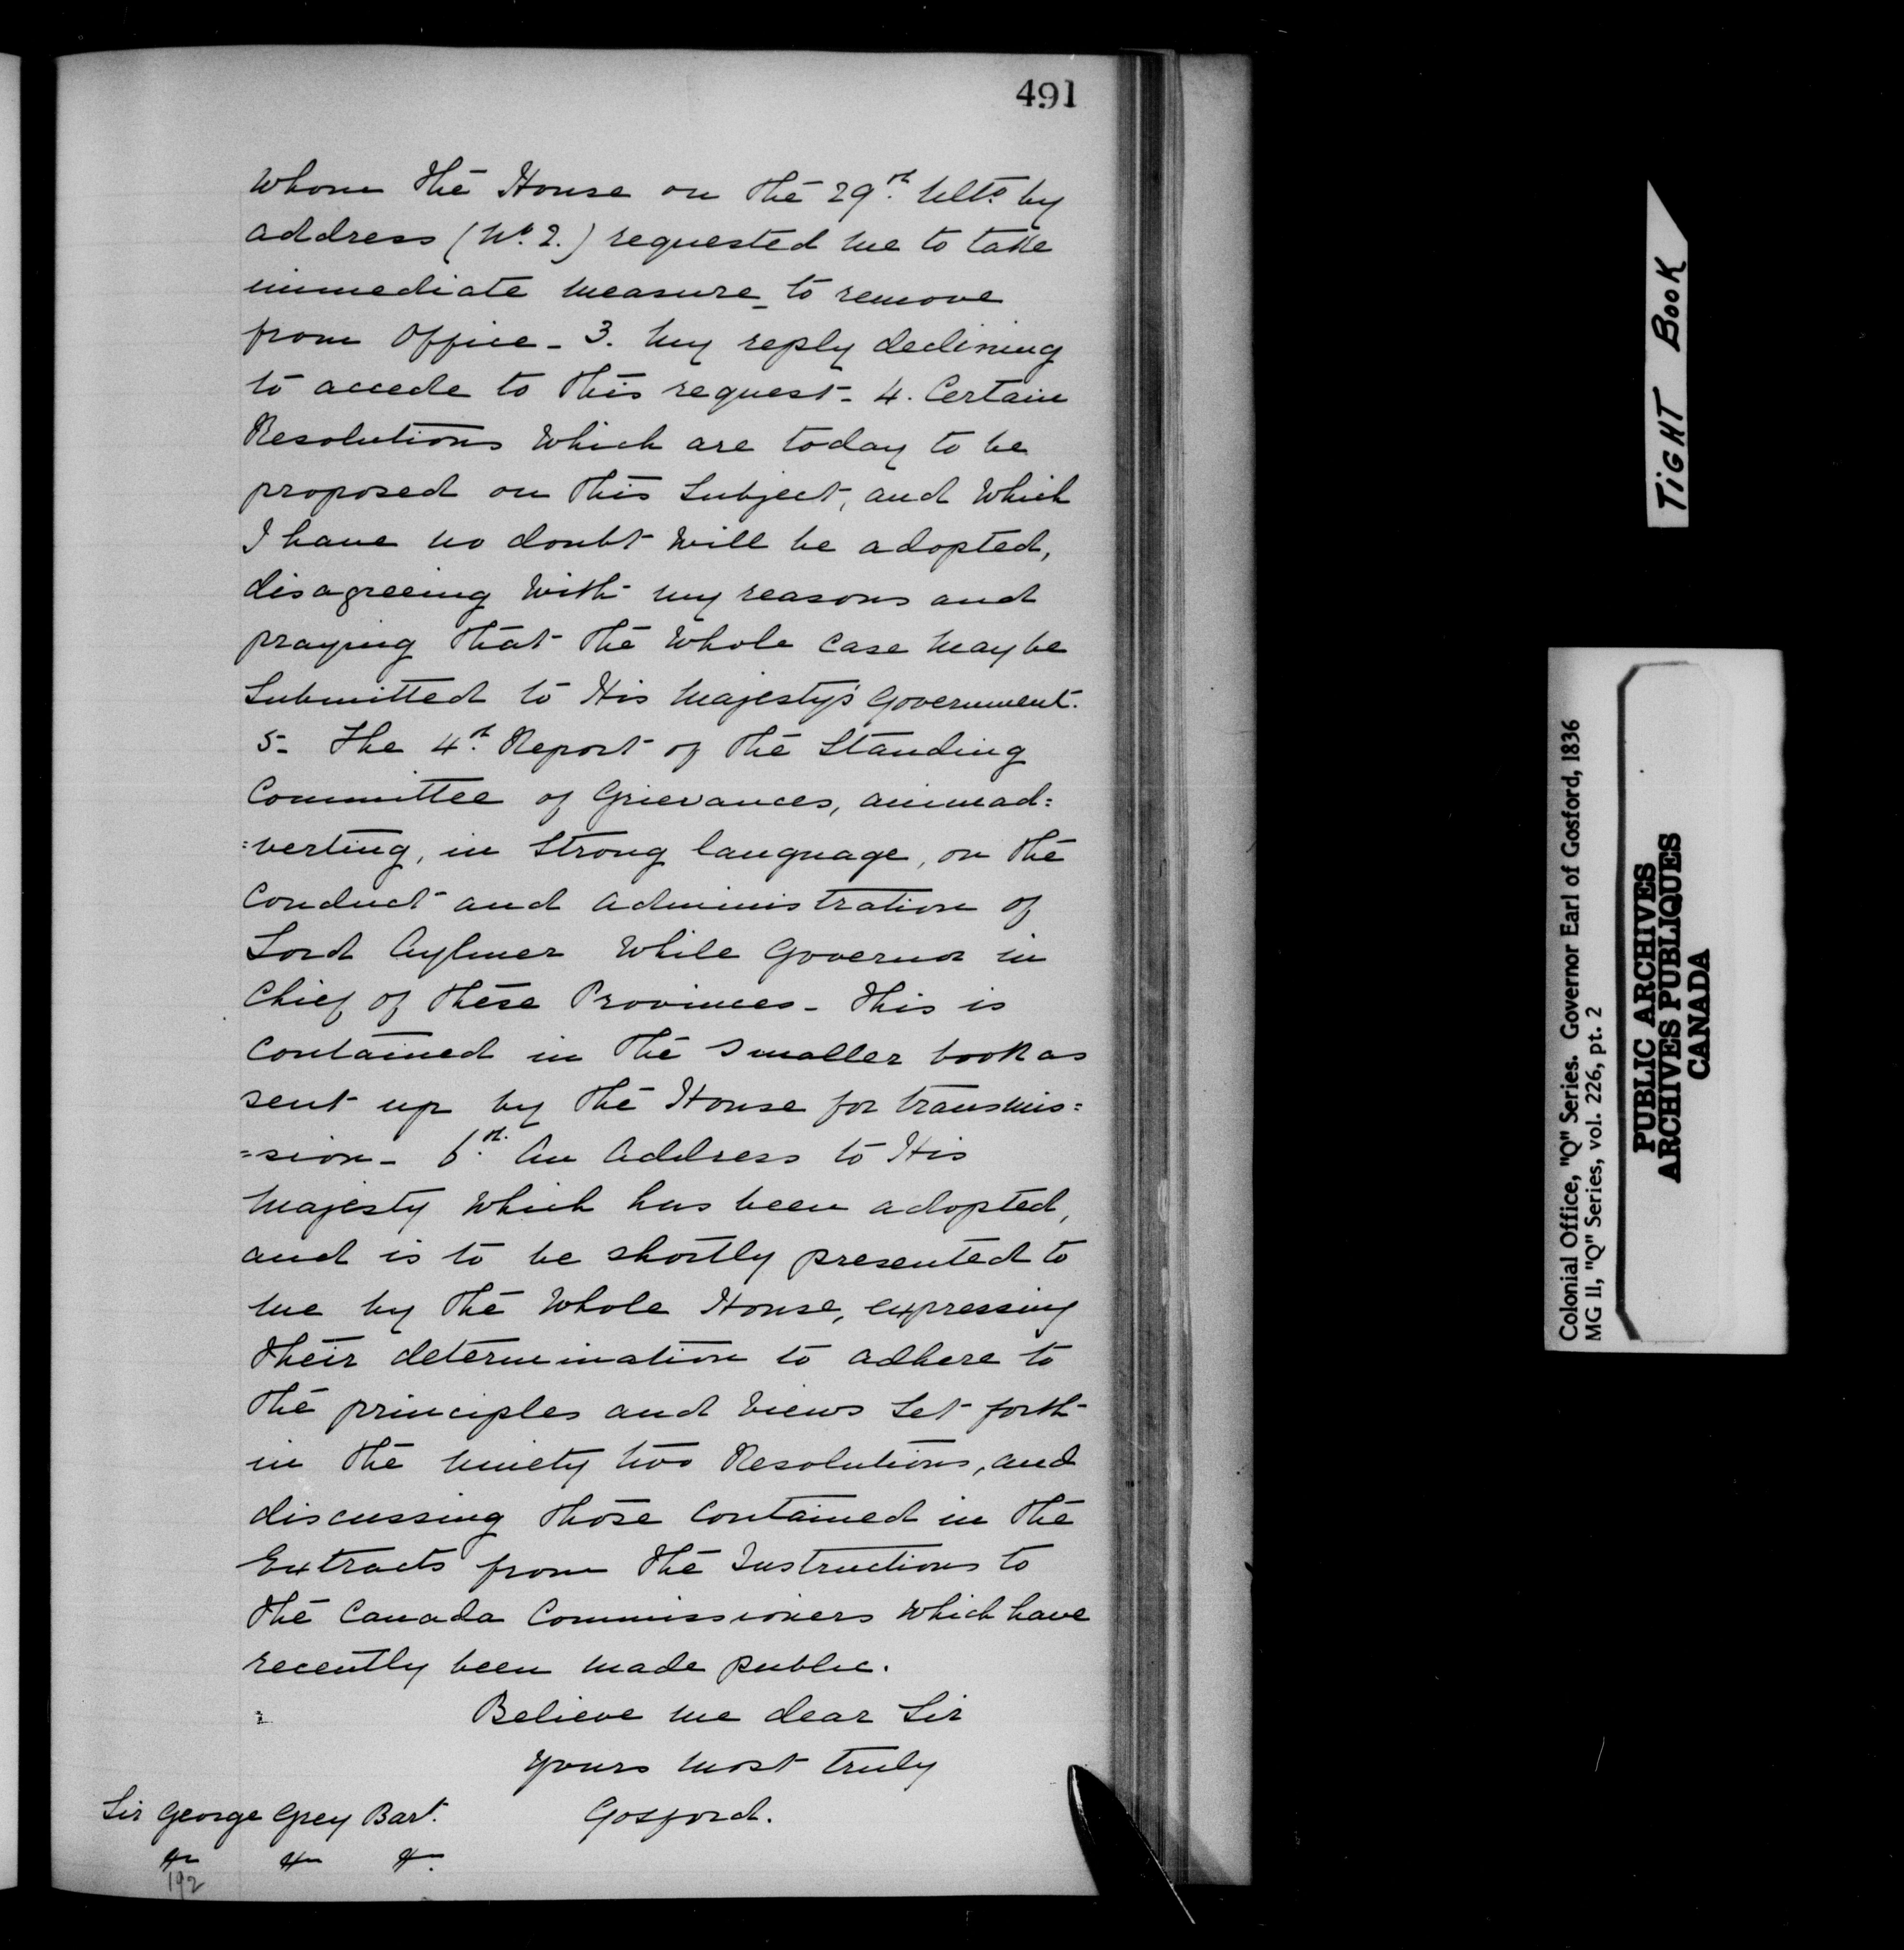 491
whom the House on the 29th. Ulto. by
address (No. 2.) requested me to take
immediate measure_ to remove
from Office - 3. My reply declining
to accede to this request - 4. Certain
Resolutions which are today to be
proposed on this Subject, and which
I have no doubt will be adopted,
disagreeing with my reasons and
praying that the whole case may be
Submitted to His Majesty's Government.
5 - The 4th. Report of the Standing
Committee of Grievances, animad=
=verting, in strong language, on the
Conduct and administration of
Lord Aylmer while Governor in
Chief of these Provinces - This is
contained in the smaller book as
sent up by the House for transmis=
=sion - 6th. An Address to His
Majesty which has been adopted,
and is to be shortly presented to
me by the whole House, expressing
their determination to adhere to
the principles and views set forth
in the ninety two Resolutions, and
discussing those contained in the
Extracts from the Instructions to
the Canada Commissioners which have
recently been made public.
Believe me dear Sir
Yours most truly
Gosford.
Sir George Grey Bart.
192
TIGHT BOOK
Colonial Office, "Q" Series. Governor Earl of Gosford, 1836
MG 11, "Q" Series, vol. 226, pt. 2
PUBLIC ARCHIVES
ARCHIVES PUBLIQUES
CANADA